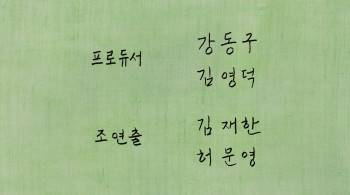 프로듀서 강동구
김영덕
조연출 김재한
허문영